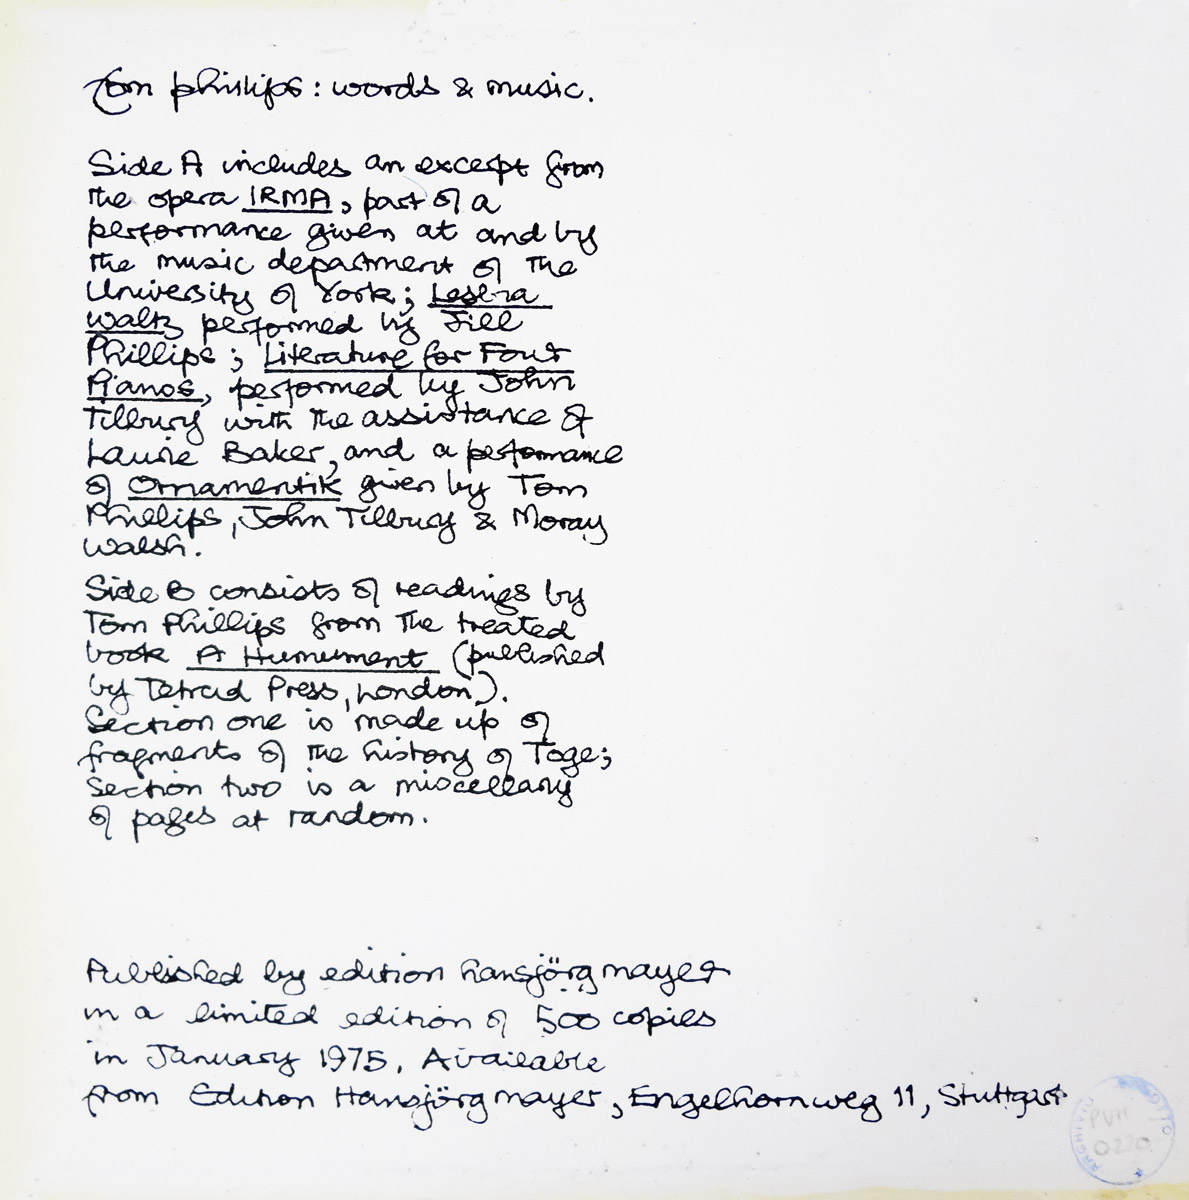 Tom phillips: words & music.
Side A includes an excerpt from
the opera IRMA, part of a
performance given at and by
the music department of the
University of York; Lesbia
Waltz performed by Jill
Phillips; Literature for Four
Pianos, performed by John
Tilbury with the assistance of
Laurie Baker, and a performance
of Ornamentik given by Tom
Phillips, John Tilbury & Moray
Walsh.
Side B consists of readings by
Tom Phillips from the treated
book A Humument (published
by Tetrad Press, London).
Section one is made up of
fragments of the history of Toge;
Section two is a miscellany
of pages at random.
Published by edition hansjörg mayer
in a limited edition of 500 copies
in January 1975. Available
from Edition Hansjörg mayer, Engelhornweg 11, Stuttgart
ARCHIVIO OTTO
PVH